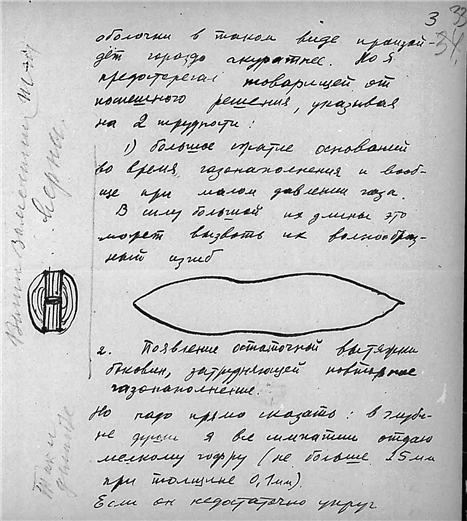 3
34.
оболочки в таком виде произой-
дёт гораздо аккуратнее. Но я
предостерегал товарищей от
поспешного решения, указывая
на 2 трудности:
1) большое сжатие оснований
во время газонаполнения и вооб-
ще при малом давлении газа.
В силу большой их длины это
может вызвать их волнообраз-
ный изгиб
2. Появление остаточной вытяжки
боковин, затрудняющей повторное
газонаполнение.
Но надо прямо сказать: в глуби-
не души я все симпатии отдаю
мелкому гофру (не больше 25мм
при толщине 0,1мм).
Если он недостаточно упруг
Ваши
верны.
Так и